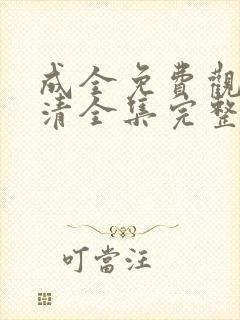 成全免費觀
清全集完整
叮當汪